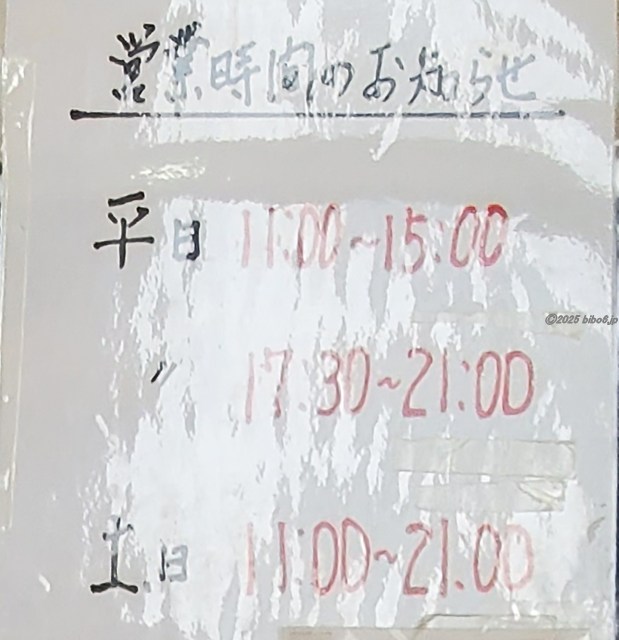 営業時間のお知らせ
平日 11:00~15:00
〃 17:30~21:00
土.日 11:00~21:00
©2025 bibo6.jp